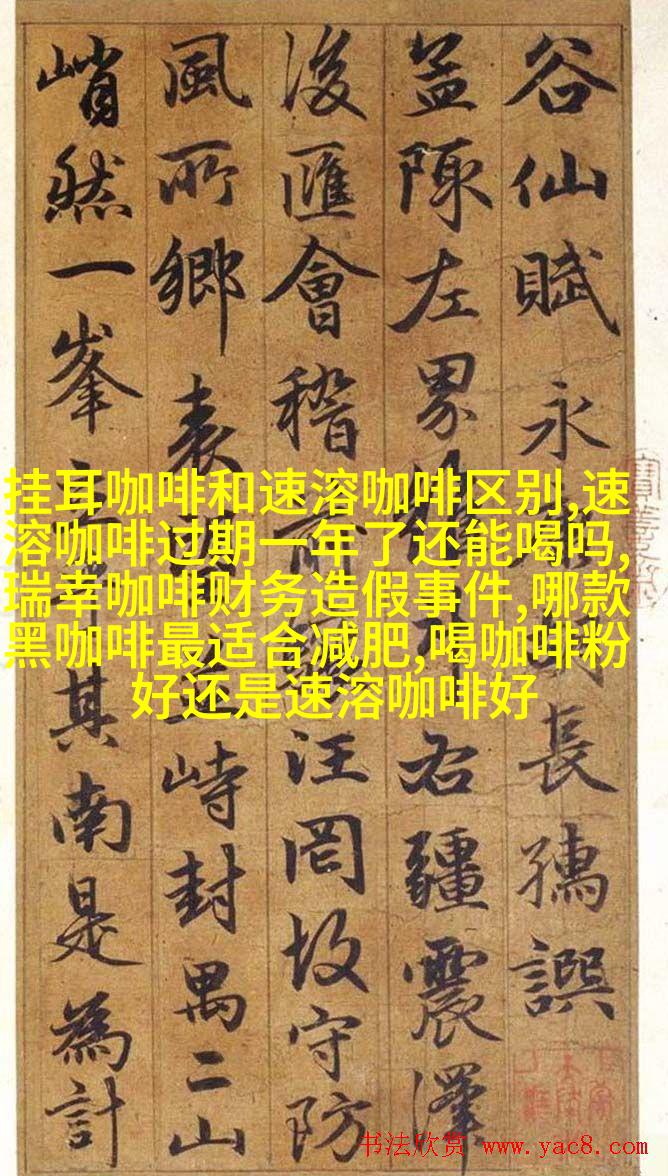 谷仙賦 永胡長孺譔
盖陳左界右疆震澤
後匯會稽前汪罔坟守防
風所鄉表近峙封禺二山
峭然一峯其南是為計
挂耳咖啡和速溶咖啡区别,速
溶咖啡过期一年了还能喝吗,
瑞幸咖啡财务造假事件,哪款
黑咖啡最适合减肥,喝咖啡粉
好还是速溶咖啡好
书法欣赏 www.yac8.com